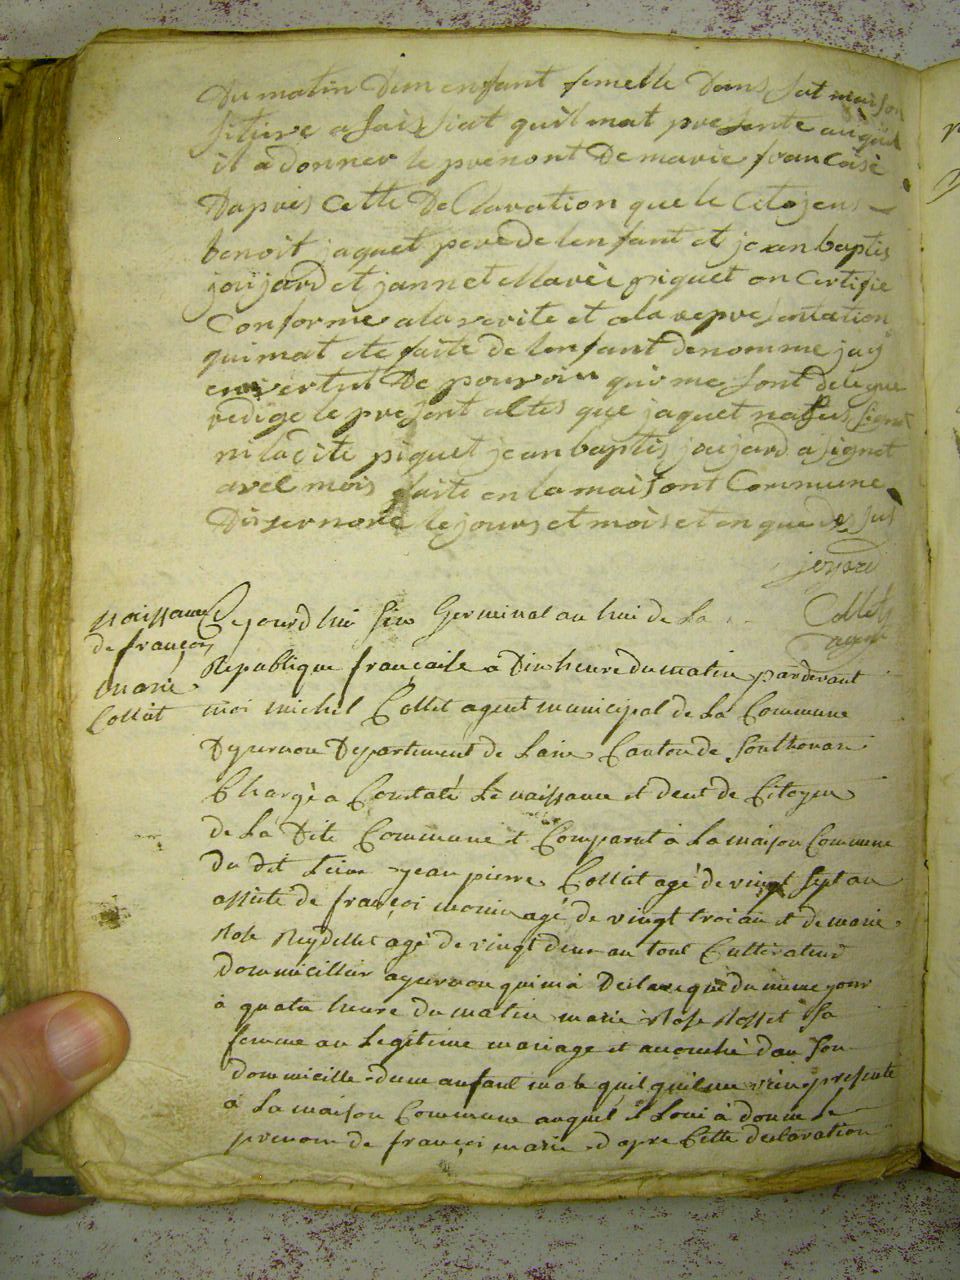 Du matin Dun enfant femelle Dans sat maison
situee a fait siat quil mat presente auquel
il a donner le prenont De marie francoise
Dapres Cette De Claration que le Citojens
benoit jaquet pere de lenfant et jean baptis
joujard et jannet Marie piquet on Certifie
Conforme a la verite et a la representation
qui mat ete faite de lenfant denomme jay
en vertut De pouvoir qui me sont delegue
redige le present altes que jaquet na sus signet
ni ladite piquet jean baptis joujard a signet
avec mois faite en la maisont Commune
le jours et mois et en que dessus
Collet
agent
Naissance
de françois
marie
Collet
Cejourdhui Six Germinal an huit de La
Republique française a Dix heure du matin pardevant
moi michel Collet agent municipal de La Commune
Dyzernou Departement de Lain Canton de Sonthonax
Chargé a Constaté Le naissance et deut de Citoyen
de La Dite Commune et Comparut à La maison Commune
du dit Leive jean pierre Collet agé de vingt sept an
assisté de françoi morin agé de vingt troi an et de marie
Rose Reydellet agé de vingt deux an tout Cultivateur
Domicillier a yzernou qui ma Declare que du meme jour
à quatre heure du matin marie Rose Rosset sa
femme an Legitime mariage et acouché dan son
dommicille dun anfant male quil ma presenté
à La maison Commune auquel il Loui à donné Le
prenom de françoi marie dapre Cette declaration